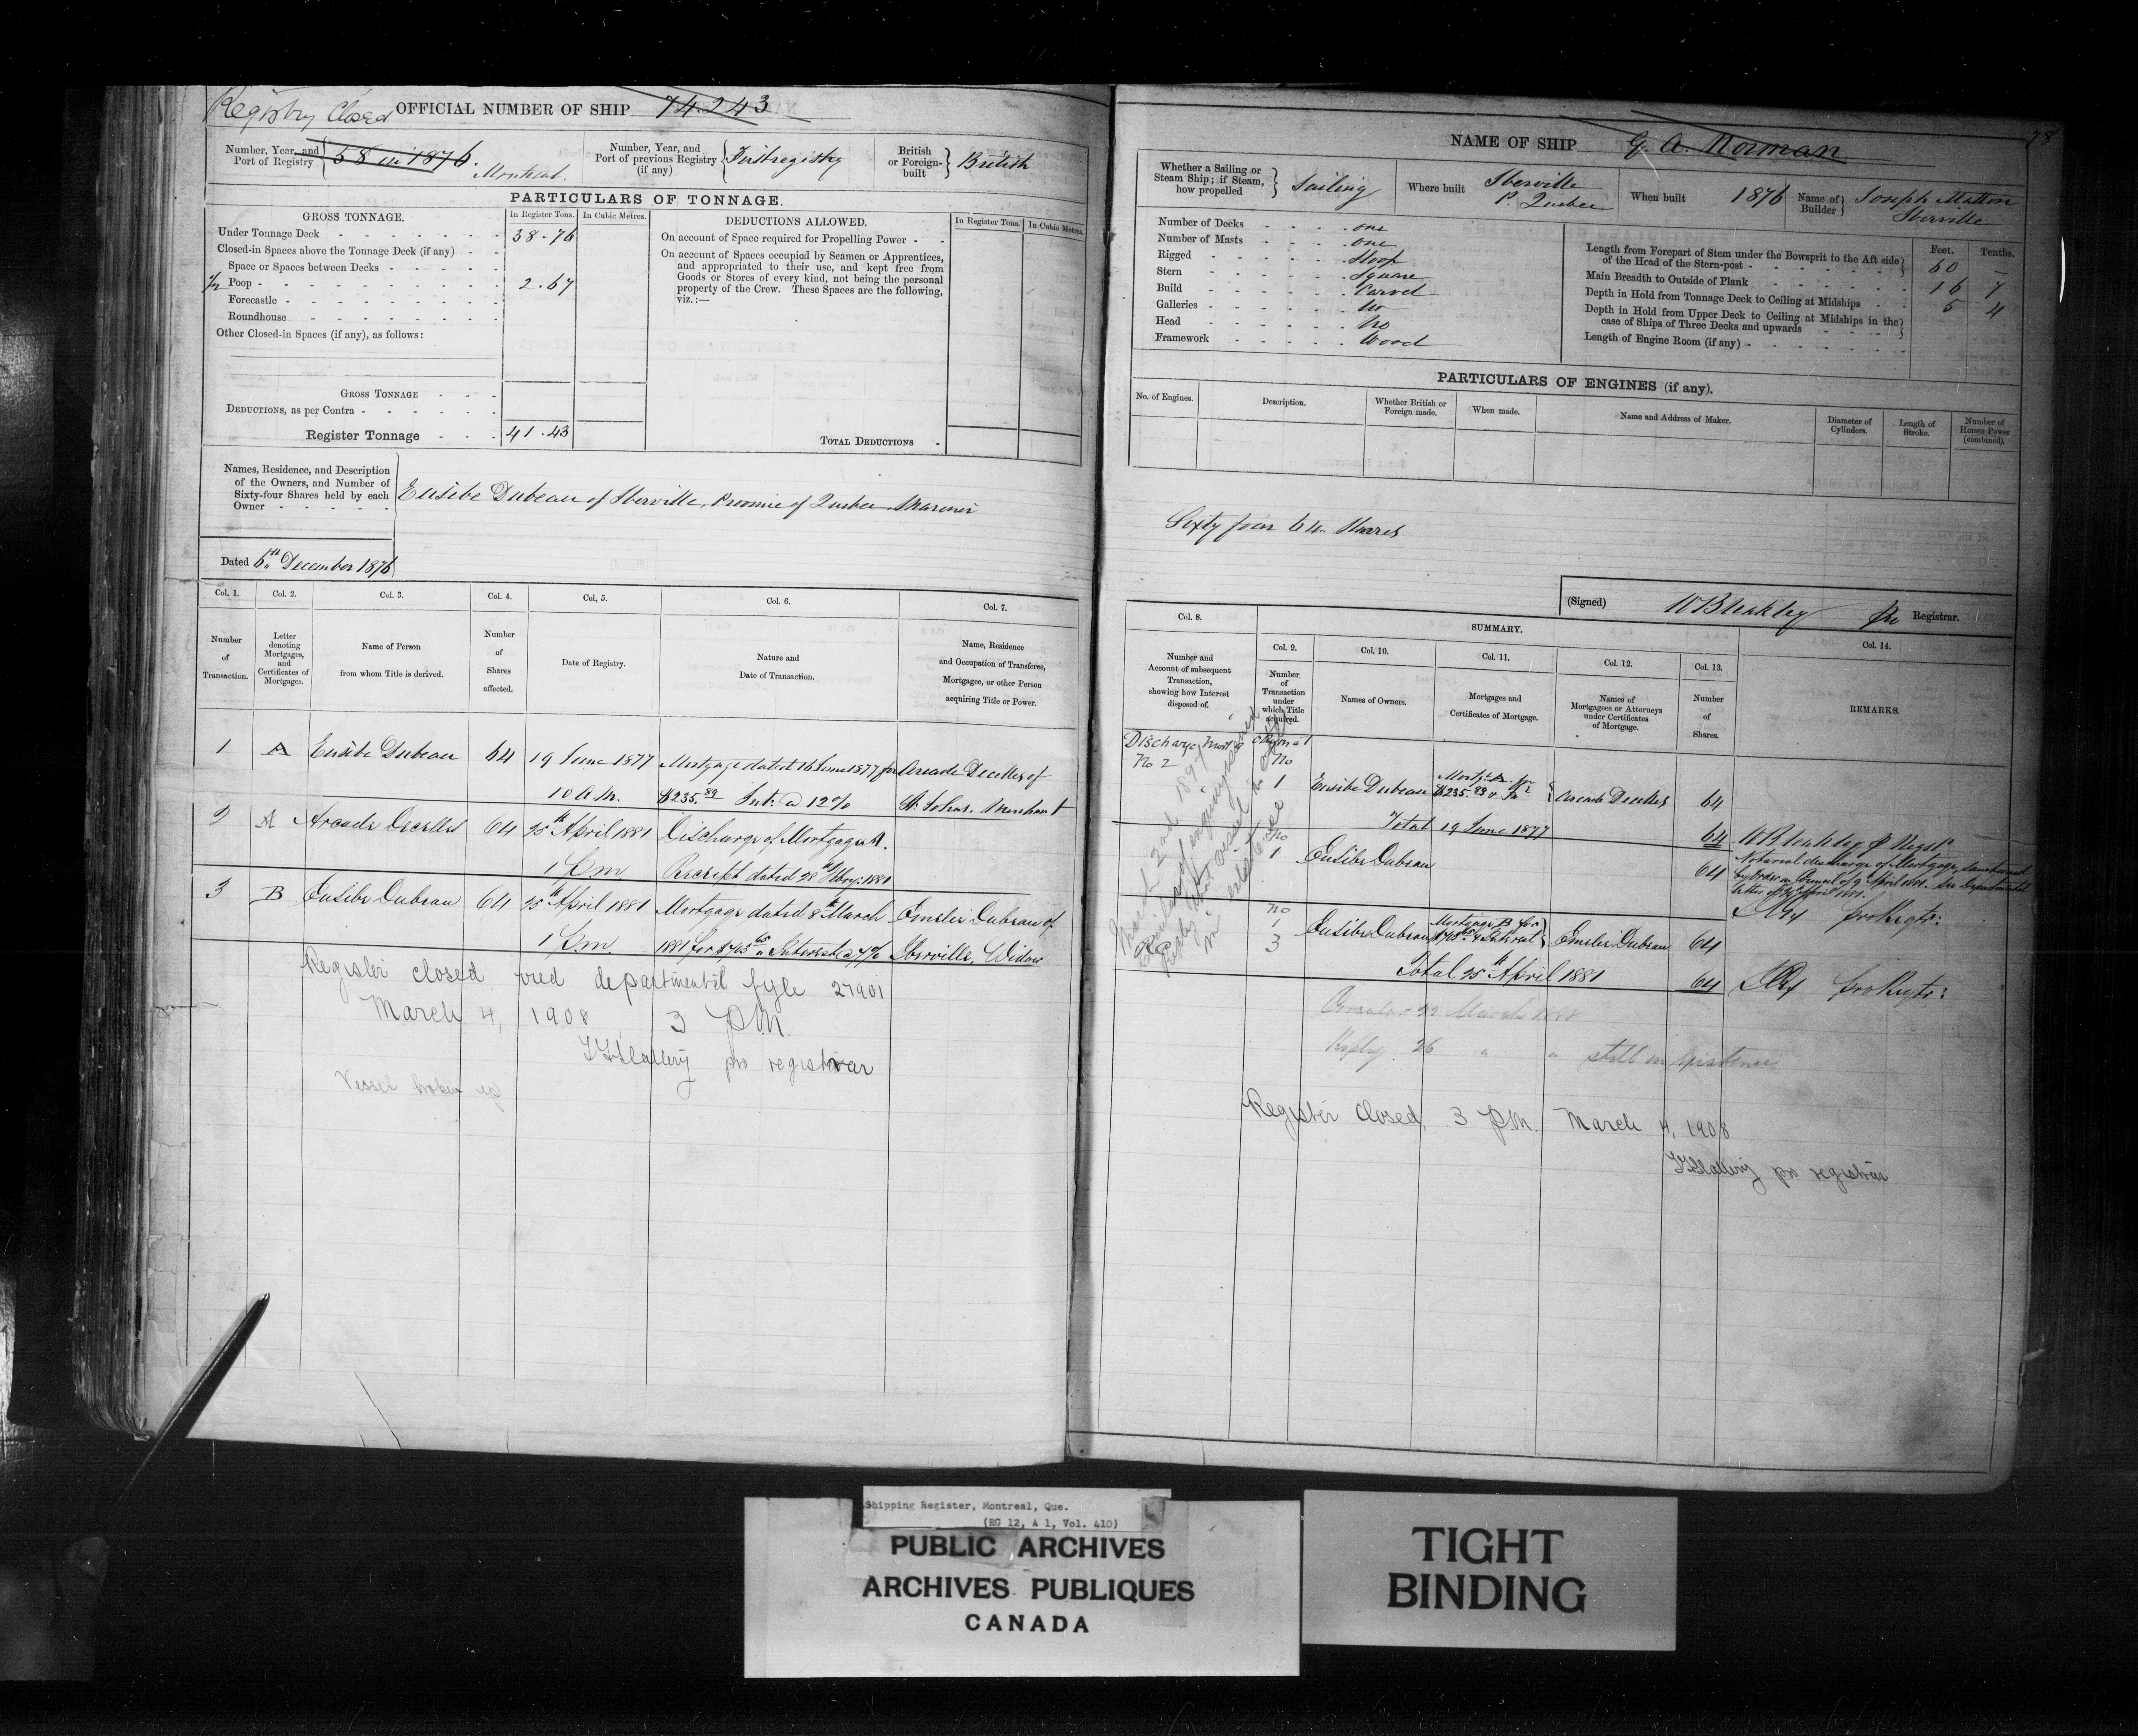 Registry Closed
OFFICIAL NUMBER OF SHIP 74243
Number, Year, and Port of Registry 58 in 1876. Montreal.
Number, Year, and Port of previous Registry (if any) First registry
British or Foreign-built British
PARTICULARS OF TONNAGE.
GROSS TONNAGE. In Register Tons. In Cubic Metres.
Under Tonnage Deck 38.76
Closed-in Spaces above the Tonnage Deck (if any)
Space or Spaces between Decks
Poop 2.67
Forecastle
Roundhouse
Other Closed-in Spaces (if any), as follows:
GROSS TONNAGE
DEDUCTIONS, as per Contra
Register Tonnage 41.43
DEDUCTIONS ALLOWED. In Register Tons. In Cubic Metres.
On account of Space required for Propelling Power
On account of Spaces occupied by Seamen or Apprentices,
and appropriated to their use, and kept free from
Goods or Stores of every kind, not being the personal
property of the Crew. These Spaces are the following,
viz.:—
TOTAL DEDUCTIONS
Names, Residence, and Description
of the Owners, and Number of
Sixty-four Shares held by each
Owner
Eusèbe Dubeau of Iberville, Province of Quebec Mariner
Dated 6th December 1876
Col. 1. Col. 2. Col. 3. Col. 4. Col. 5. Col. 6. Col. 7.
Number of Transaction.
Letter denoting Mortgages, and Certificates of Mortgages.
Name of Person from whom Title is derived.
Number of Shares affected.
Date of Registry.
Nature and Date of Transaction.
Name, Residence and Occupation of Transferee, Mortgagee, or other Person acquiring Title or Power.
1 A Eusèbe Dubeau 64 19 June 1877 Mortgage dated 16 June 1877 for Arcade Decelles of
10 A.M. $235.89 Int. @ 12% St. Johns. Merchant
2 A Arcade Decelles 64 25th April 1881 Discharge of Mortgage A.
1 P.m Receipt dated 28th Feby: 1881
3 B Eusèbe Dubeau 64 25th April 1881 Mortgage dated 8th March Emelie Dubeau of
1 P.m 1881 for $765 65 Interest @ 7% Iberville, Widow
Register closed, vred departmental fyle 27901
March 4, 1908, 3 P.M.
pro registrar
Vessel broken up
78
NAME OF SHIP G. A. Norman
Whether a Sailing or Steam Ship; if Steam, how propelled Sailing
Where built Iberville P. Quebec
When built 1876
Name of Builder Joseph Matton Iberville
Number of Decks one
Number of Masts one
Rigged Sloop
Stern Square
Build Carvel
Galleries No
Head No
Framework Wood
Feet. Tenths.
Length from Forepart of Stem under the Bowsprit to the Aft side of the Head of the Stern-post 60 —
Main Breadth to Outside of Plank 16 7
Depth in Hold from Tonnage Deck to Ceiling at Midships 5 4
Depth in Hold from Upper Deck to Ceiling at Midships in the case of Ships of Three Decks and upwards
Length of Engine Room (if any)
PARTICULARS OF ENGINES (if any).
No. of Engines. Description. Whether British or Foreign made. When made. Name and Address of Maker. Diameter of Cylinders. Length of Stroke. Number of Horses Power (combined).
Sixty four 64 Shares
(Signed) W Bleakley Pro Registrar.
Col. 8. SUMMARY. Col. 14.
Col. 9. Col. 10. Col. 11. Col. 12. Col. 13.
Number and Account of subsequent Transaction, showing how Interest disposed of.
Number of Transaction under which Title acquired.
Names of Owners.
Mortgages and Certificates of Mortgage.
Names of Mortgagees or Attorneys under Certificates of Mortgage.
Number of Shares.
REMARKS.
Discharge Mortg A original
No 2 No
1 Eusèbe Dubeau Mortge A for $235.89 Arcade Decelles 64
Total 19 June 1877 64 W Bleakley P Regst
No
1 Eusèbe Dubeau 64 Notarial discharge of Mortgage sanctioned
by Order in Council of 9 April 1881. See Departmental
letter of April 1881.
pro Regtr:
No
1 Eusèbe Dubeau Mortgage B for $765 65 & Interest Emelie Dubeau 64
3
Total 25th April 1881 64 pro Regtr:
March 2nd 1897
Circular 22 March 1898
Reply 26 " " still in existence
Register closed, 3 P.M. March 4, 1908
pro registrar
Shipping Register, Montreal, Que.
(RG 12, A 1, Vol. 410)
PUBLIC ARCHIVES
ARCHIVES PUBLIQUES
CANADA
TIGHT
BINDING